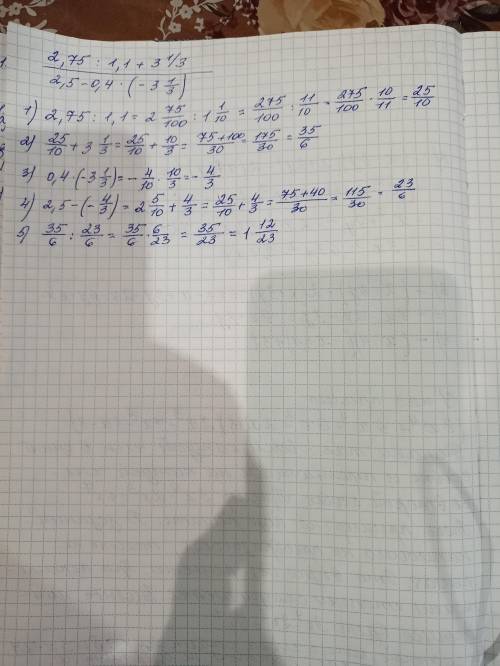 2,75 : 1,1 + 3 1/3
2,5 - 0,4 · (-3 1/3)
1) 2,75 : 1,1 = 2 75/100 : 1 1/10 = 275/100 : 11/10 = 275/100 · 10/11 = 25/10
2) 25/10 + 3 1/3 = 25/10 + 10/3 = 75+100/30 = 175/30 = 35/6
3) 0,4 · (-3 1/3) = - 4/10 · 10/3 = - 4/3
4) 2,5 - (- 4/3) = 2 5/10 + 4/3 = 25/10 + 4/3 = 75+40/30 = 115/30 = 23/6
5) 35/6 : 23/6 = 35/6 · 6/23 = 35/23 = 1 12/23